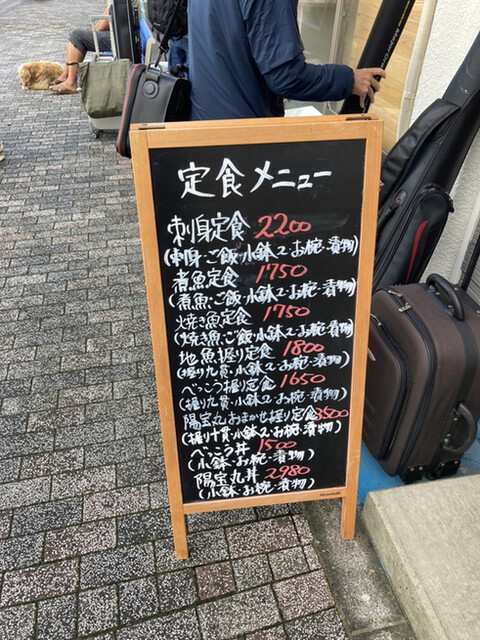 定食メニュー
刺身定食 2200
(刺身・ご飯・小鉢2・お椀・漬物)
煮魚定食 1750
(煮魚・ご飯・小鉢2・お椀・漬物)
焼き魚定食 1750
(焼き魚・ご飯・小鉢2・お椀・漬物)
地魚握り定食 1800
(握り九貫・小鉢2・お椀・漬物)
べっこう握り定食 1650
(握り九貫・小鉢2・お椀・漬物)
陽宝丸おまかせ握り定食 3500
(握り十貫・小鉢2・お椀・漬物)
べっこう丼 1500
(小鉢・お椀・漬物)
陽宝丸丼 2980
(小鉢・お椀・漬物)